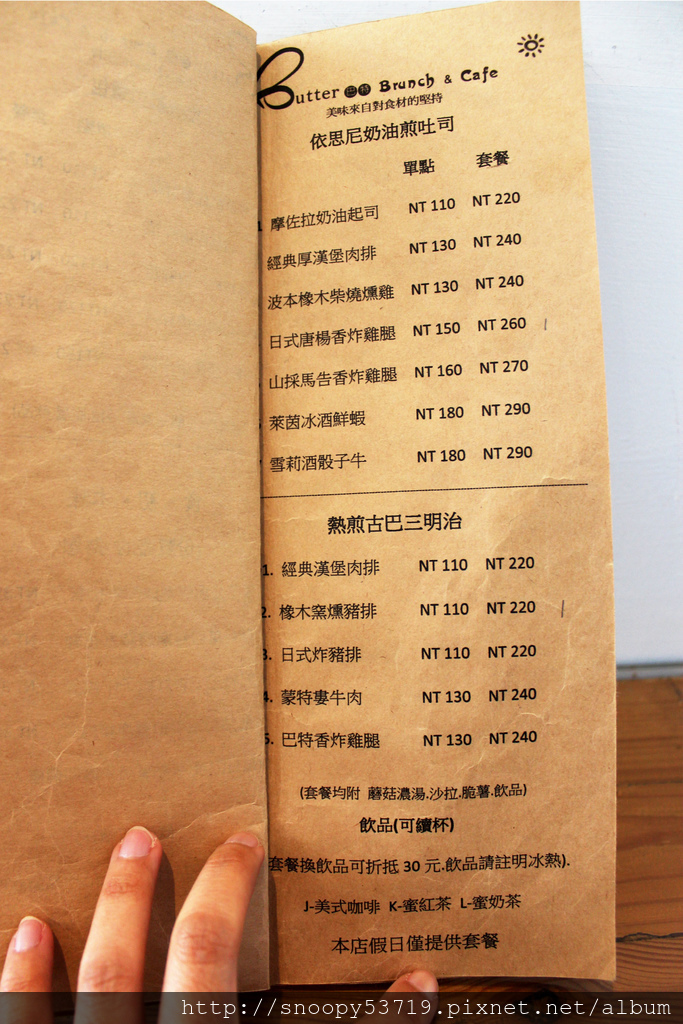 Butter 巴特 Brunch & Cafe
美味來自對食材的堅持
依思尼奶油煎吐司
單點 套餐
1 摩佐拉奶油起司 NT 110 NT 220
經典厚漢堡肉排 NT 130 NT 240
波本橡木柴燒燻雞 NT 130 NT 240
日式唐楊香炸雞腿 NT 150 NT 260
山採馬告香炸雞腿 NT 160 NT 270
萊茵冰酒鮮蝦 NT 180 NT 290
雪莉酒骰子牛 NT 180 NT 290
熱煎古巴三明治
1. 經典漢堡肉排 NT 110 NT 220
2. 橡木窯燻豬排 NT 110 NT 220
3. 日式炸豬排 NT 110 NT 220
4. 蒙特婁牛肉 NT 130 NT 240
5. 巴特香炸雞腿 NT 130 NT 240
(套餐均附 蘑菇濃湯.沙拉.脆薯.飲品)
飲品(可續杯)
套餐換飲品可折抵 30 元.飲品請註明冰熱).
J-美式咖啡 K-蜜紅茶 L-蜜奶茶
本店假日僅提供套餐
http://snoopy53719.pixnet.net/album